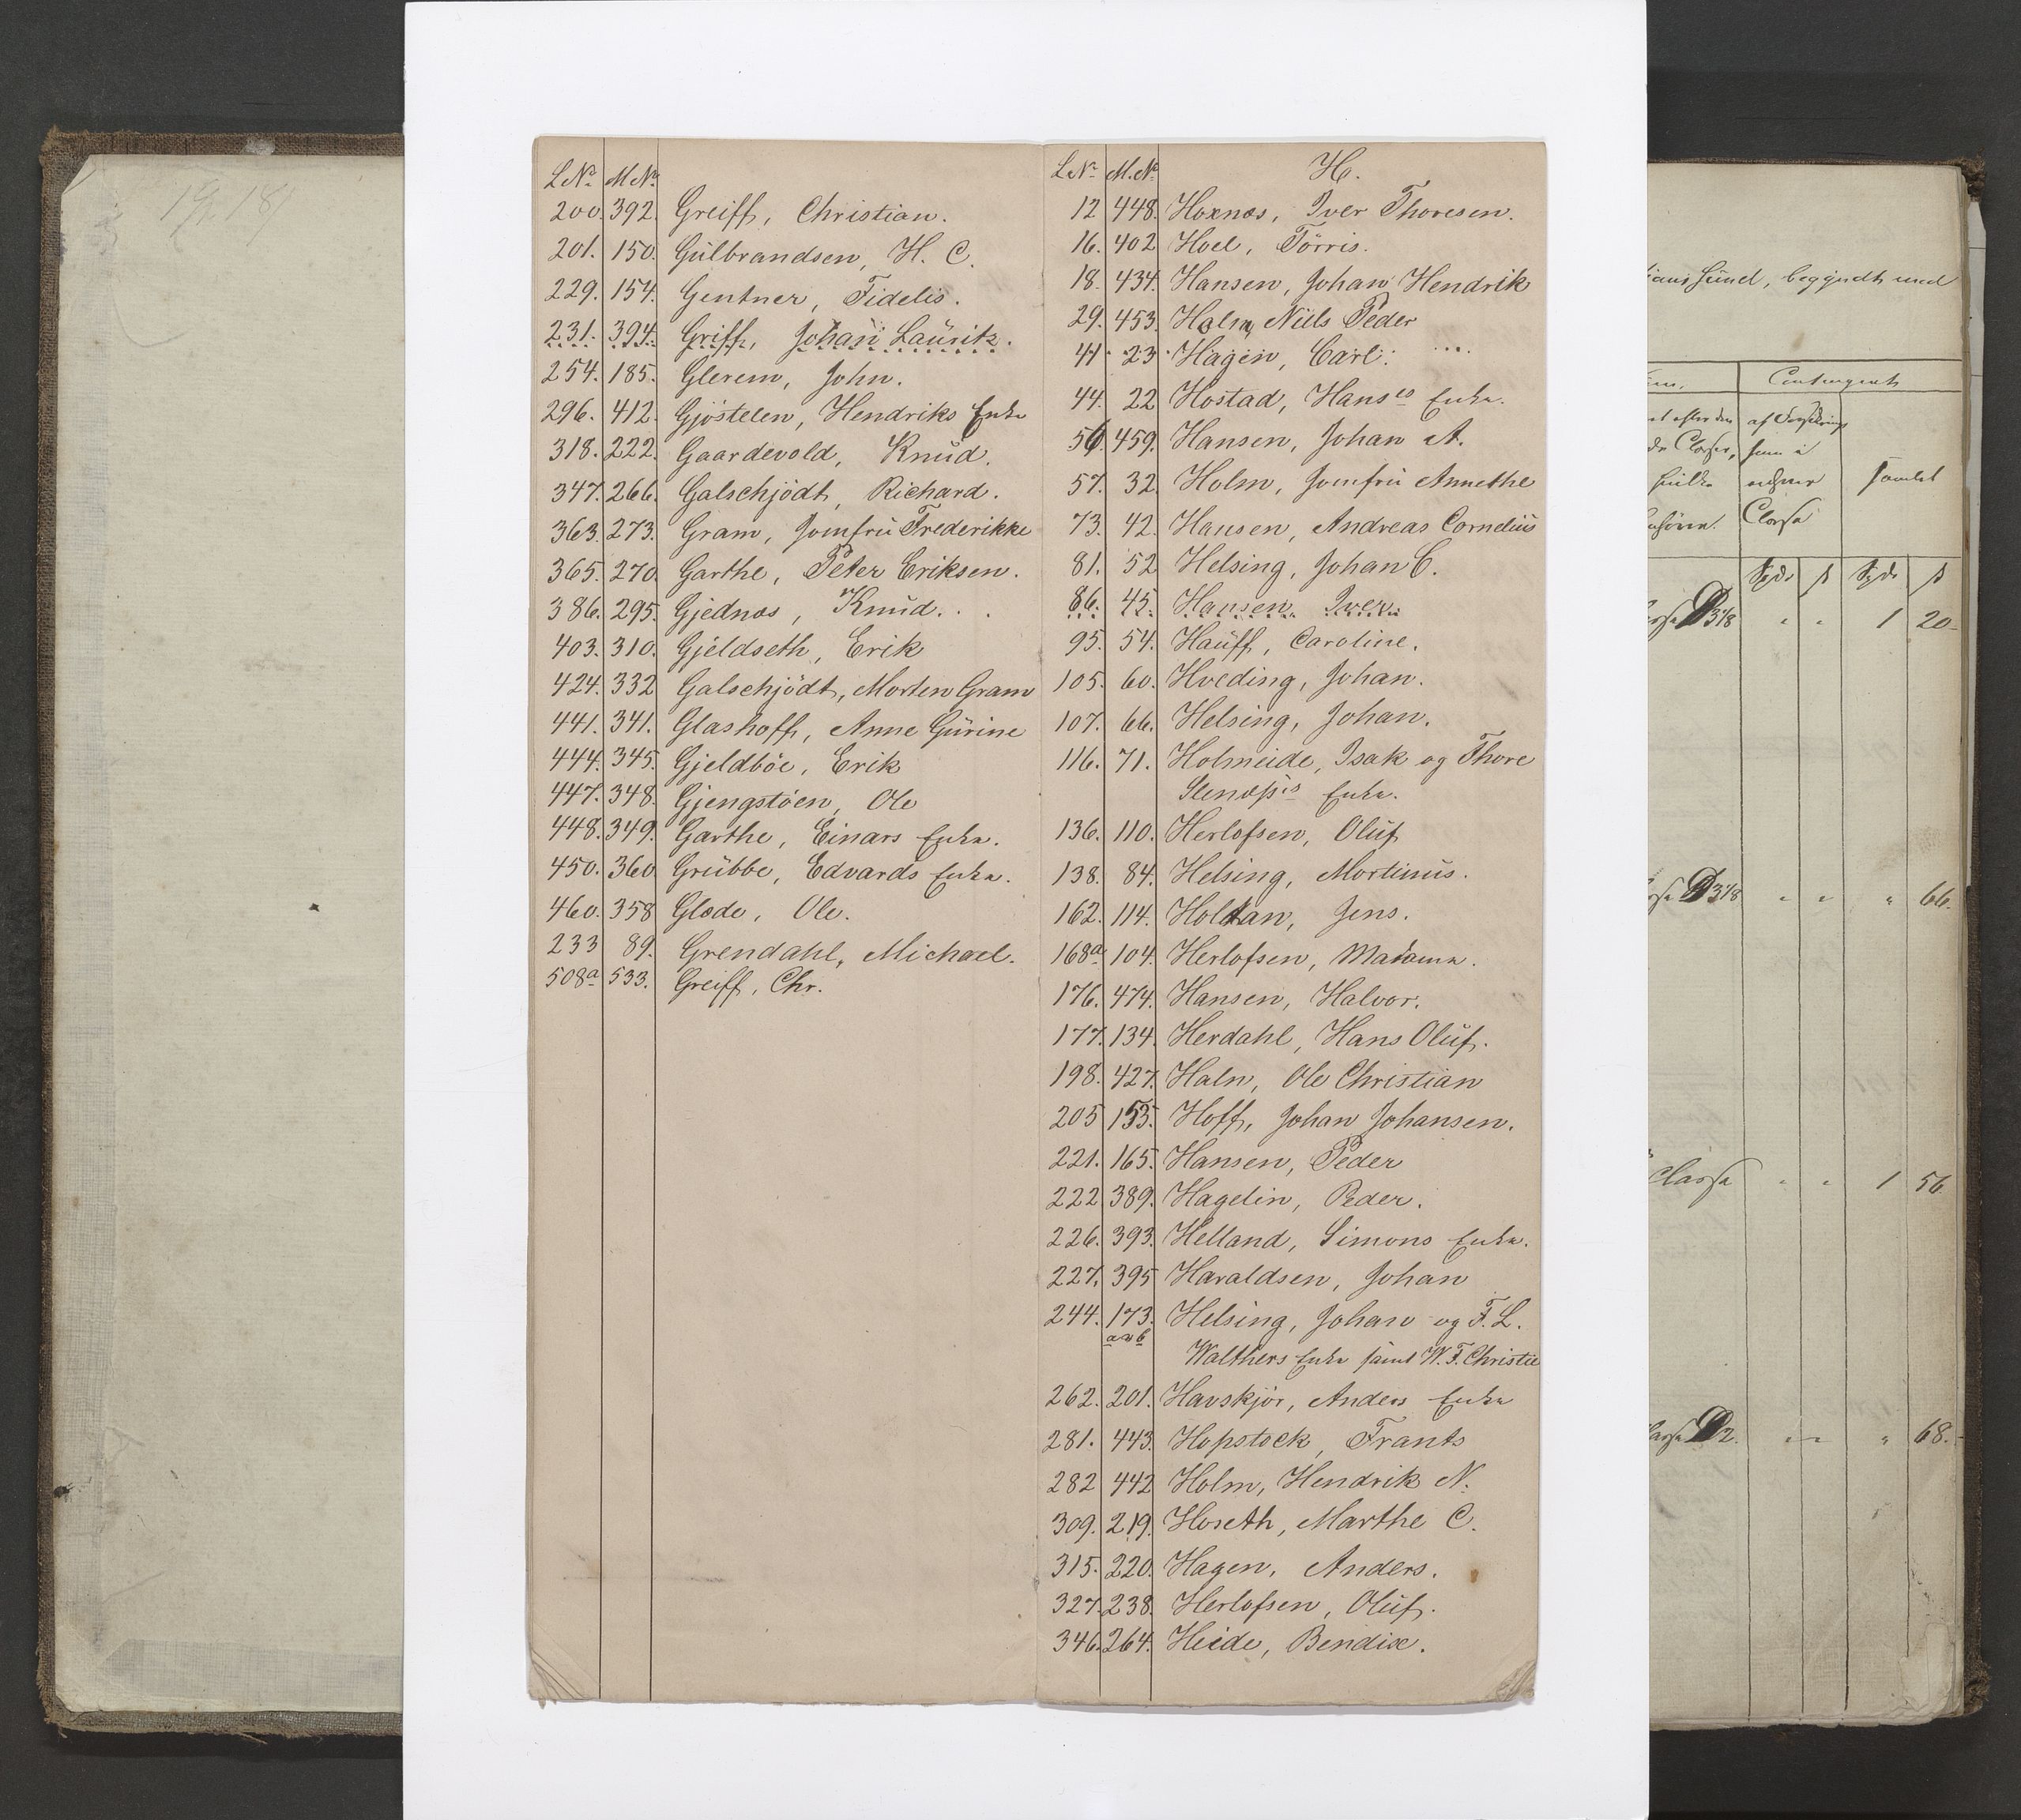 L.No. M.No.
200. 392. Greiff, Christian.
201. 150. Gulbrandsen, H. C.
229. 154. Gentner, Fidelis.
231. 394. Griff, Johan Lauritz.
254. 185. Glerem, John.
296. 412. Gjöstelen, Hendriks Enke
318. 222. Gaardevold, Knud.
347. 266. Galschjödt, Richard.
363. 273. Gram, Jomfru Frederikke
365. 270. Garthe, Peter Eriksen.
386. 295. Gjednæs, Knud.
403. 310. Gjeldseth, Erik
424. 332 Galschjödt, Morten Gram
441. 341. Glashoff, Anne Gurine
444. 345. Gjeldböe, Erik
447. 348. Gjengstöen, Ole
448. 349. Garthe, Einars Enke.
450. 360. Grubbe, Edvards Enke.
460. 358 Gløde, Ole.
233 89. Grendahl, Michael.
508a 533. Greiff, Chr.
L.No. M.No. H.
12 448. Hoxnæs, Iver Thoresen.
16. 402 Hoel, Törris.
18. 434. Hansen, Johan Hendrik
29. 453. Holm, Niels Peder
41. 23. Hagen, Carl.
44. 22 Hostad, Hans's Enke.
56. 459. Hansen, Johan A.
57. 32. Holm, Jomfru Annethe
73. 42. Hansen, Andreas Cornelius
81. 52 Helsing, Johan C.
86. 45. Hansen, Iver.
95. 54. Hauff, Caroline.
105. 60. Hveding, Johan.
107. 66. Helsing, Johan.
116. 71. Holmeide, Isak og Thore
Enke.
136. 110. Herlofsen, Oluf
138. 84. Helsing, Mortinus.
162. 114. Holtan, Jens.
168a 104. Herlofsen, Madame.
176. 474. Hansen, Halvor.
177. 134. Herdahl, Hans Oluf.
198. 427. Haln, Ole Christian
205 155. Hoff, Johan Johansen.
221. 165. Hansen, Peder
222 389. Hagelin, Peder.
226. 393. Helland, Simons Enke.
227. 395 Haraldsen, Johan
244. 173. Helsing, Johan og F. L.
a & b Walthers Enke samt W. F. Christie
262. 201. Havskjær, Anders Enke
281. 443. Hopstock, Frants
282 442 Holm, Hendrik N.
309. 219. Hoseth, Marthe C.
315. 220. Hagen, Anders.
327. 238. Herlofsen, Oluf.
346. 264. Heide, Bendix.
sund, begyndt med
Contingent
af Forsikring
Classe, som i
enhver samlet
Classe
Spd. s Spd. s
D 3/8 " " 1 20
D 3/8 " " " 66.
Classe " " 1 56
D 2. " " " 68.